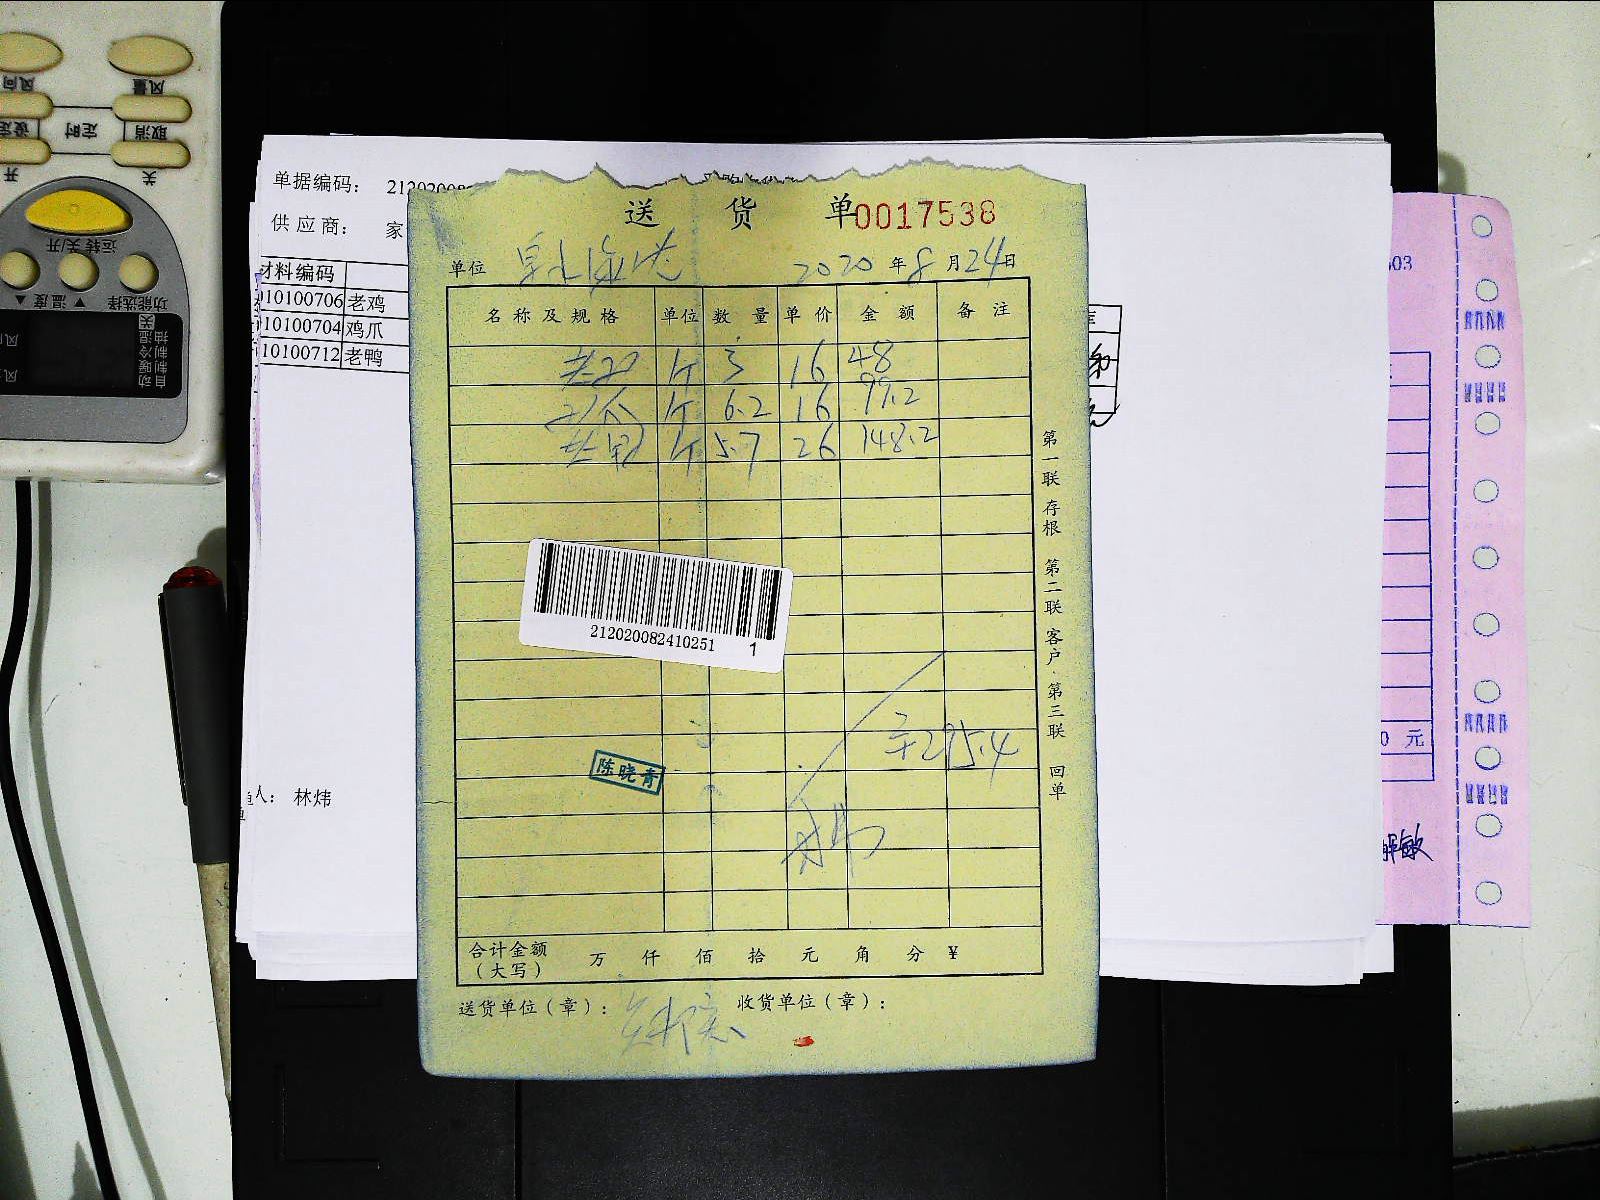 风向
风量
设定
定时
取消
开
关
运转关/开
▲ 温度 ▼
功能选择
抽湿
制冷
制暖
自动
单据编码： 212020082
供应商： 家
材料编码
10100706 老鸡
10100704 鸡爪
10100712 老鸭
人： 林炜
送 货 单 0017538
单位
2020 年 8 月 24 日
名称及规格 单位 数量 单价 金额 备注
老鸡 斤 3 16 48
鸡爪 斤 6.2 16 99.2
老鸭 斤 5.7 26 148.2
212020082410251 1
295.4
陈晓青
合计金额 （大写） 万 仟 佰 拾 元 角 分 ¥
送货单位（章）： 收货单位（章）：
第一联 存根 第二联 客户 第三联 回单
603
0 元